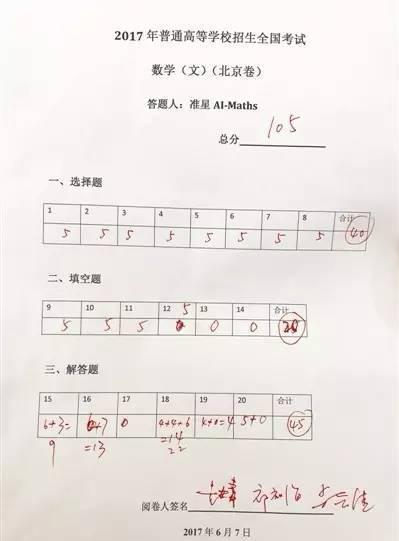 2017 年普通高等学校招生全国考试
数学（文）（北京卷）
答题人：准星 AI-Maths
总分 105
一、选择题
1 2 3 4 5 6 7 8 合计
5 5 5 5 5 5 5 5 40
二、填空题
9 10 11 12 13 14 合计
5
5 5 5 0 0 20
三、解答题
15 16 17 18 19 20 合计
6+3= +7 0 4+4+6 4+0=4 5+0 45
9 =13 =14
22
阅卷人签名
2017 年 6 月 7 日